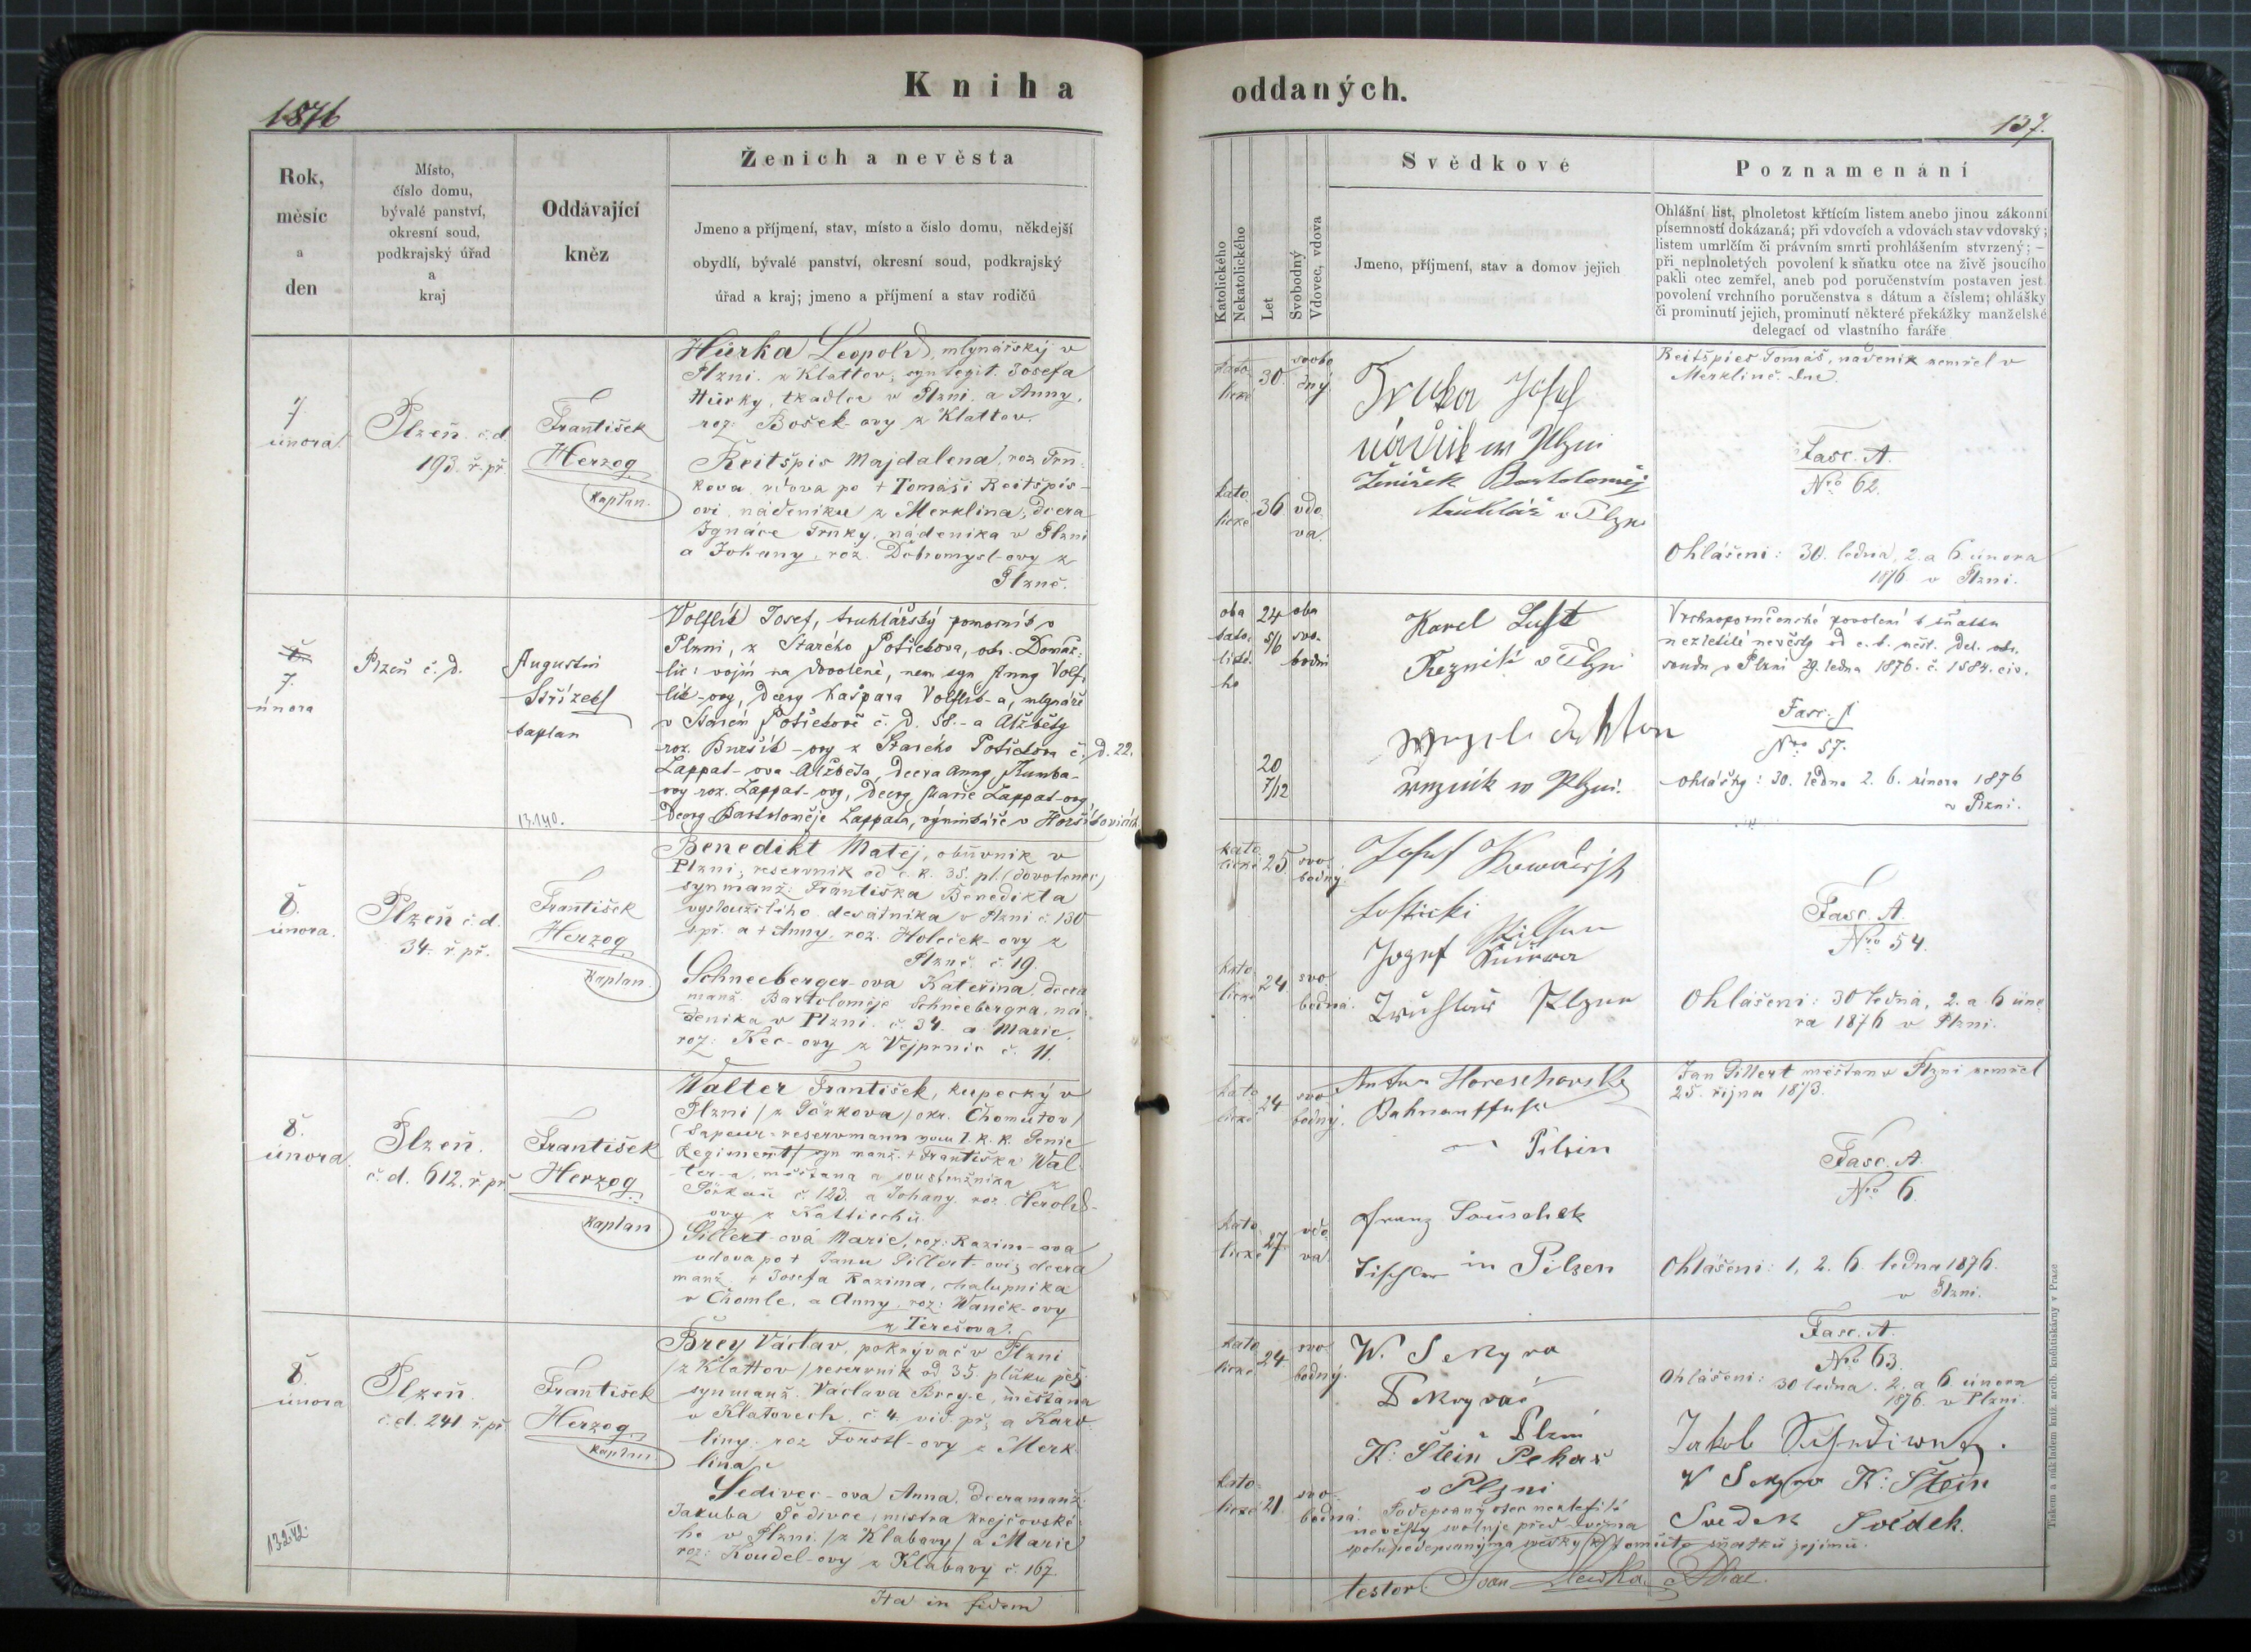 Kniha
1876
Rok,
měsíc
a
den
Místo,
číslo domu,
bývalé panství,
okresní soud,
podkrajský úřad
a
kraj
Oddávající
kněz
Ženich a nevěsta
Jmeno a příjmení, stav, místo a číslo domu, někdejší
obydlí, bývalé panství, okresní soud, podkrajský
úřad a kraj; jmeno a příjmení a stav rodičů
7
února
Plzeň č. d.
193. ř. př.
František
Herzog
Kaplan.
Hůrka Leopold, mlynářský v
Plzni. z Klattov, syn legit. Josefa
Hůrky, tkadlce v Plzni, a Anny,
roz: Bošek-ovy z Klattov.
Reitšpis Majdalena, roz Trn-
kova, vdova po + Tomáši Reitšpis-
ovi, nádeníku z Merklína, dcera
Ignáce Trnky, nádeníka v Plzni
a Johany, roz. Dobromysl-ovy z
Plzně.
7.
února
Plzeň č. d.
Augustin
Střízek
kaplan
13.140.
Volflík Josef, truhlářský pomocník v
Plzni, z Starého Postřekova, okr. Domaž-
lic: vojín na dovolené, nem. syn Anny Volf-
lík-ovy, dcery Kašpara Volflík-a, mlynáře
v Starém Postřekově č. d. 58. - a Alžběty
roz. Buršík-ovy z Starého Postřekova č. d. 22.
Lappat-ova Alžběta, dcera Anny
roz. Lappat-ovy, dcery Marie Lappat-ovy,
Dcery Bartoloměje Lappata, v
8.
února.
Plzeň č. d.
34. ř. př.
František
Herzog
Kaplan.
Benedikt Matěj, obuvník v
Plzni, reservník od c. k. 35. pl. (dovolenec)
syn manž: Františka Benedikta
vysloužilého desátníka v Plzni č. 130
s př. a + Anny, roz. Holeček-ovy z
Plzně č. 19.
Schneeberger-ova Kateřina, dcera
manž. Bartoloměje Schneebergra, ná-
deníka v Plzni č. 34. a Marie,
roz: Kec-ovy z Vejprnic č. 11.
8.
února
Plzeň.
č. d. 612. ř. př.
František
Herzog
Kaplan
Walter František, kupecký v
Plzni / z Görkova / okr. Chomutov /
(Sapeur-reservmann vom 1. k. k. Genie
Regiment / syn manž. + Františka Wal-
ter-a, měšťana a soustružníka z
Görkau č. 123. a Johany, roz. Herold-
ovy z
Gillert-ová Marie, roz: Razim-ova
vdova po + Janu Gillert-ovi; dcera
manž. + Josefa Razima, chalupníka
v Chomle, a Anny, roz: Waněk-ovy
z Terešova.
8.
února
Plzeň.
č. d. 241 ř. př.
František
Herzog
Kaplan
13242.
Brey Václav, pokrývač v Plzni
/ z Klattov / reservník od 35. pluku pěš.
syn manž. Václava Brey-e, měšťana
v Klatovech, č. 4. víd. př; a Karo-
liny, roz Forstl-ovy z Merk-
lína
Šedivec-ova Anna, dcera manž:
Jakuba Šedivce, mistra krejčovské-
ho v Plzni. / z Klabavy / a Marie
roz: Koudel-ovy z Klabavy č. 167.
Ita in fidem
oddaných.
137.
Katolického
Nekatolického
Let
Svobodný
Vdovec, vdova
Svědkové
Jmeno, příjmení, stav a domov jejich
Poznamenání
Ohlášní list, plnoletost křtícím listem anebo jinou zákonní
písemností dokázaná; při vdovcích a vdovách stav vdovský;
listem umrlčím či právním smrti prohlášením stvrzený; —
při neplnoletých povolení k sňatku otce na živě jsoucího
pakli otec zemřel, aneb pod poručenstvím postaven jest
povolení vrchního poručenstva s dátum a číslem; ohlášky
či prominutí jejich, prominutí některé překážky manželské
delegací od vlastního faráře
kato
lické
30.
svobo
dný
Trnka Josef
nádeník w Plzni
Ženíšek Bartoloměj
truhlář v Plzni
kato
lické
36
vdo-
va.
Reitšpies Tomáš, nádeník zemřel v
Merklíně. dne.
Fasc. A.
Nro 62.
Ohlášení: 30. ledna, 2. a 6 února
1876 v Plzni.
oba
kato-
lické-
ho
24
5/6
oba
svo-
bodni
20
7/12
Karel Lust
Řezník v Plzni
řezník w Plzni.
Vrchnoporučenské povolení k sňatku
nezletilé nevěsty od c. k. měst. del. okr.
soudu v Plzni 29. ledna 1876. č. 1584. civ.
Fasc. A
Nro 57.
Ohlášky: 30. ledna 2. 6. února 1876
v Plzni.
kato
lické
25
svo
bodný.
Josef
Pilsen
Jozef
Plzen
kato
lické
24
svo
bodná.
Fasc. A.
Nro 54.
Ohlášení: 30 ledna, 2. a 6 úno-
ra 1876 v Plzni.
kato
lické
24
svo
bodný.
Anton Horeschovsky
Pilsen
kato
lické
27
vdo-
va.
Franz Souschek
Tischler in Pilsen
Jan Gillert měšťan v Plzni zemřel
25. října 1873.
Fasc. A.
Nro 6.
Ohlášení: 1, 2. 6. ledna 1876.
v Plzni.
kato
lické
24
svo
bodný.
W. Sekyra
Pokryvač
v Plzni
K: Štein Pekař
v Plzni
kato
lické
21.
svo-
bodná.
Fasc. A.
Nro 63.
Ohlášení: 30 ledna. 2. a 6 února
1876. v Plzni.
Podepsaný otec nezletilé
nevěsty svoluje před dvěma
spolupodepsanýma svědky k tomuto sňatku jejímu.
Jakob
W Sekyra K: Štein
Svedek Svědek.
testor.
Tiskem a nákladem kníž. arcib. knihtiskárny v Praze